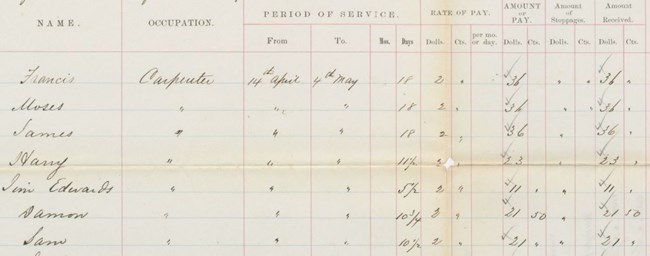 NAME. OCCUPATION. PERIOD OF SERVICE. RATE OF PAY. AMOUNT OF PAY. Amount of Stoppages. Amount Received.
From To. Mos. Days Dolls. Cts. per mo. or day. Dolls. Cts. Dolls. Cts. Dolls. Cts.
Francis Carpenter 14th April 4th May 18 2 " 36 " " " 36 "
Moses " " " 18 2 " 36 " " " 36 "
James " " " 18 2 " 36 " " " 36 "
Harry " " " 11½ 2 23 " " " 23 "
Jim Edwards " " " 5½ 2 " 11 " " 11 "
Damon " " " 10¾ 2 " 21 50 " 21 50
Sam " " " 10½ 2 " 21 " " 21 "